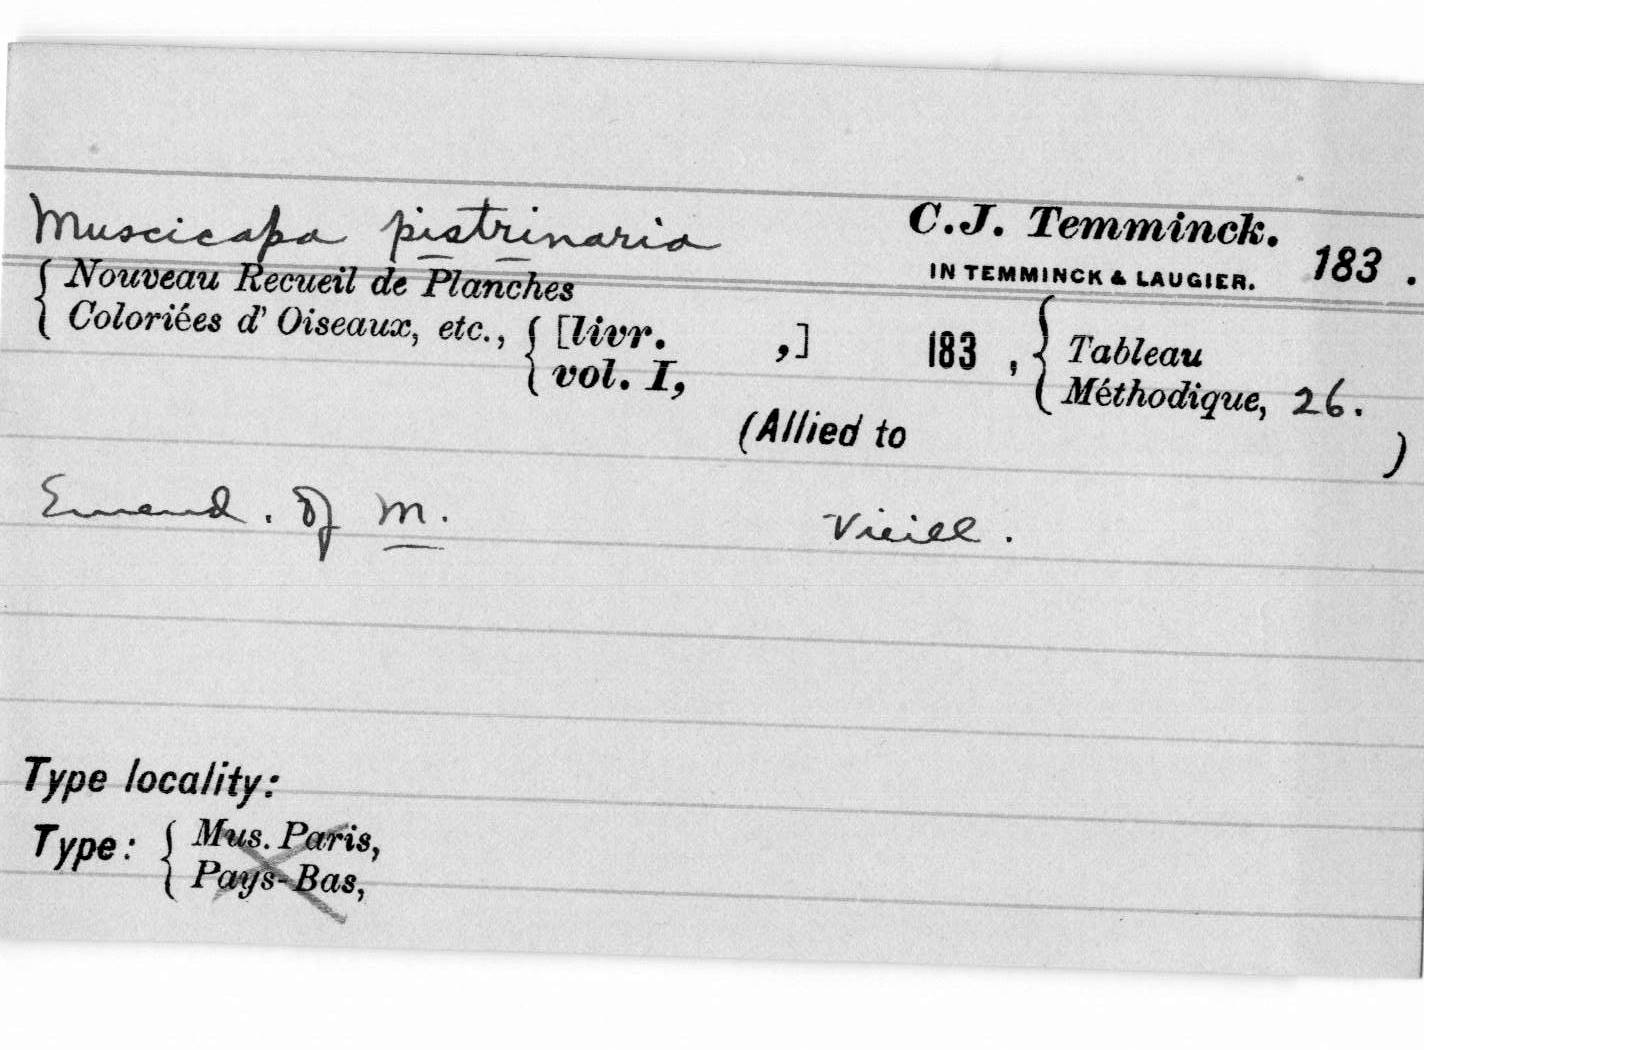 Muscicapa pistrinaria C.J. Temminck.
IN TEMMINCK & LAUGIER. 183 .
{ Nouveau Recueil de Planches
Coloriées d' Oiseaux, etc., { [livr. ,] 183 , { Tableau
vol. I, Méthodique, 26.
(Allied to )
Emend. of M. Vieill.
Type locality:
Type: { Mus. Paris,
Pays-Bas,